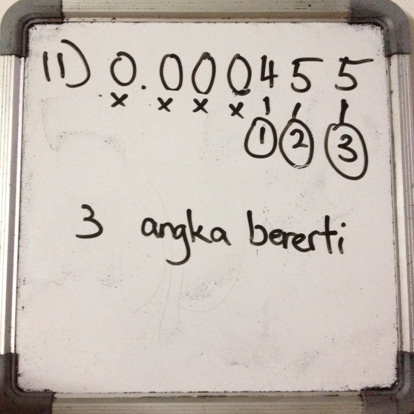 11) 0.000455
x x x x 1 2 3
3 angka bererti